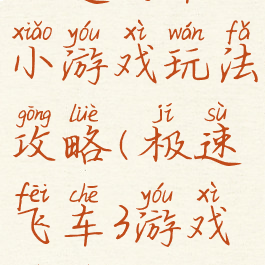 xiǎo yóu xì wán fǎ
小游戏玩法
gōng lüè jí sù
攻略(极速
fēi chē yóu xì
飞车3游戏